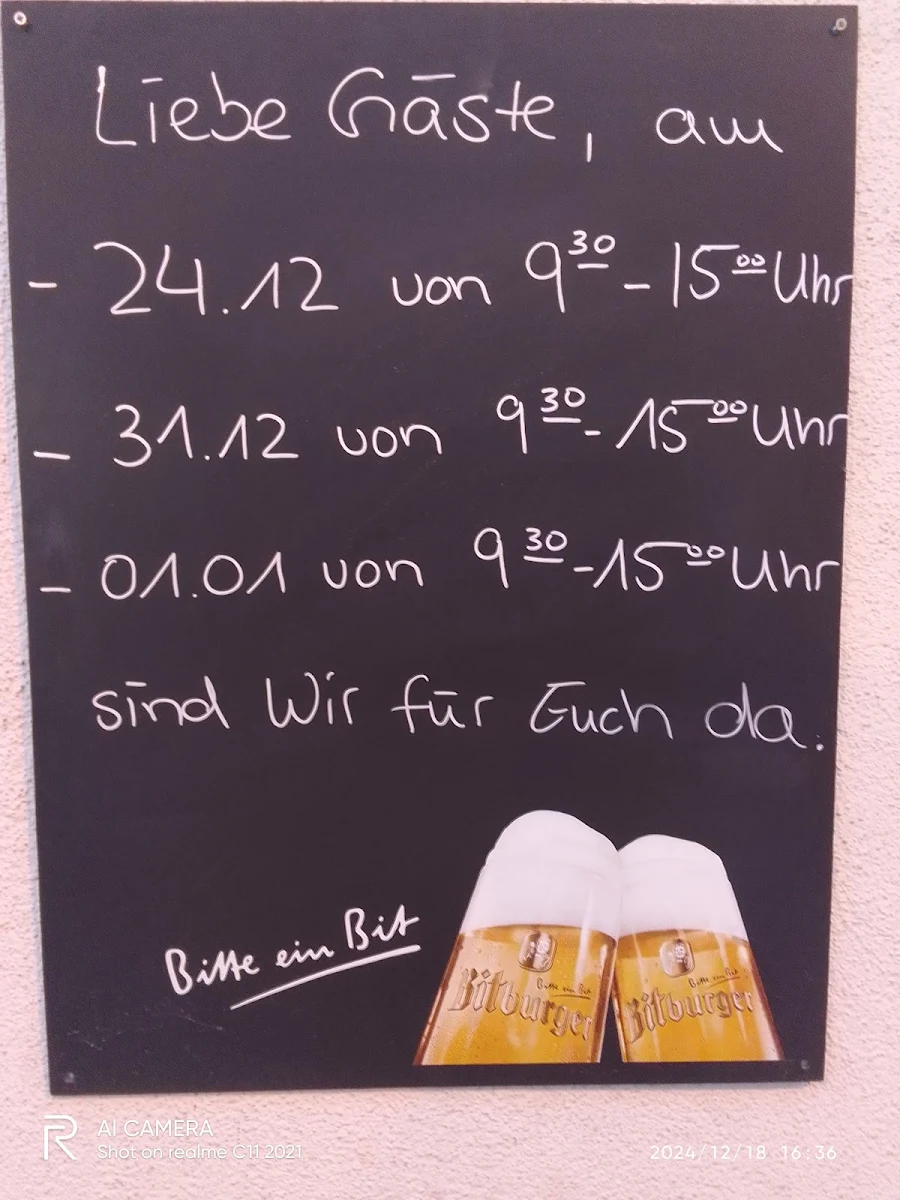 Liebe Gäste, am
- 24.12 von 9³⁰ - 15⁰⁰ Uhr
- 31.12 von 9³⁰ - 15⁰⁰ Uhr
- 01.01 von 9³⁰ - 15⁰⁰ Uhr
sind Wir für Euch da.
Bitte ein Bit
Bitte ein Bit
Bitburger
Bitte ein Bit
Bitburger
AI CAMERA
Shot on realme C11 2021
2024/12/18 16:36